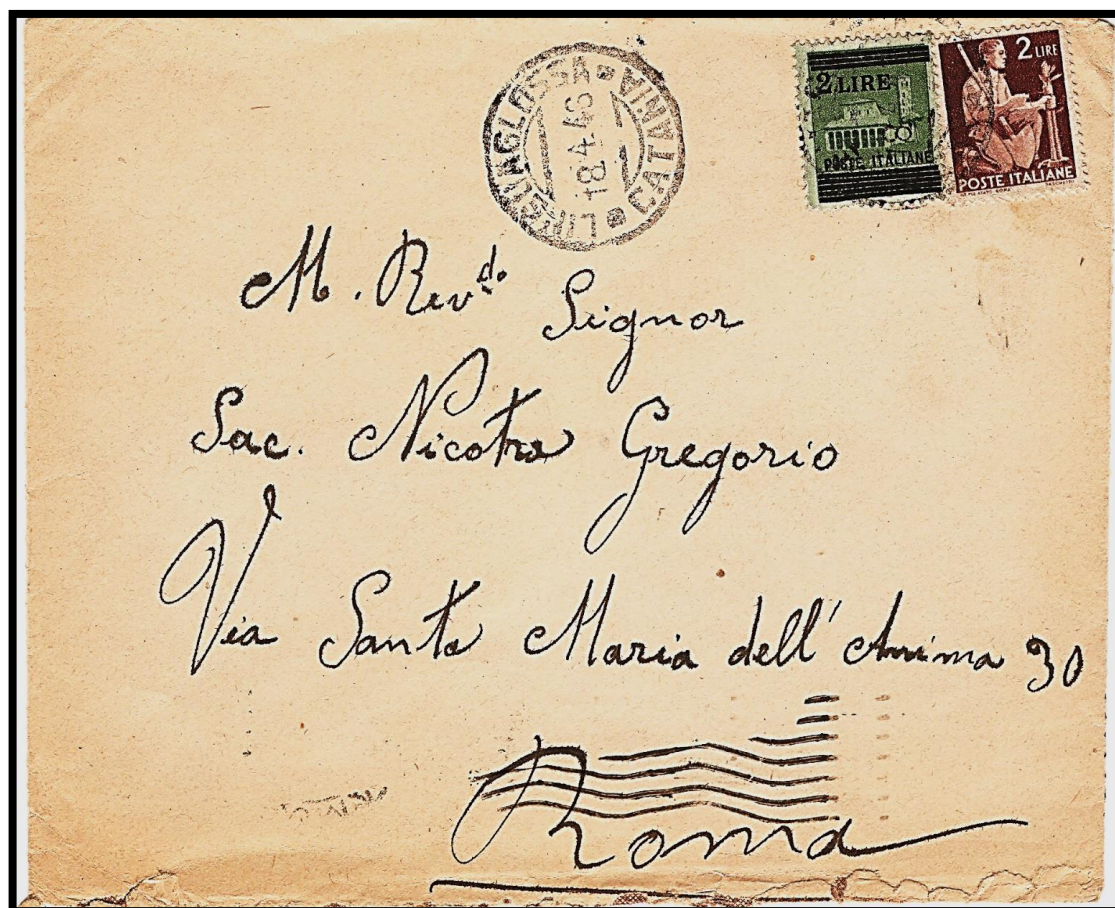 LINGUAGLOSSA
CATANIA
18.4.46
2 LIRE
POSTE ITALIANE
2 LIRE
POSTE ITALIANE
M. Rev.do Signor
Sac. Nicotra Gregorio
Via Santa Maria dell'Anima 30
Roma